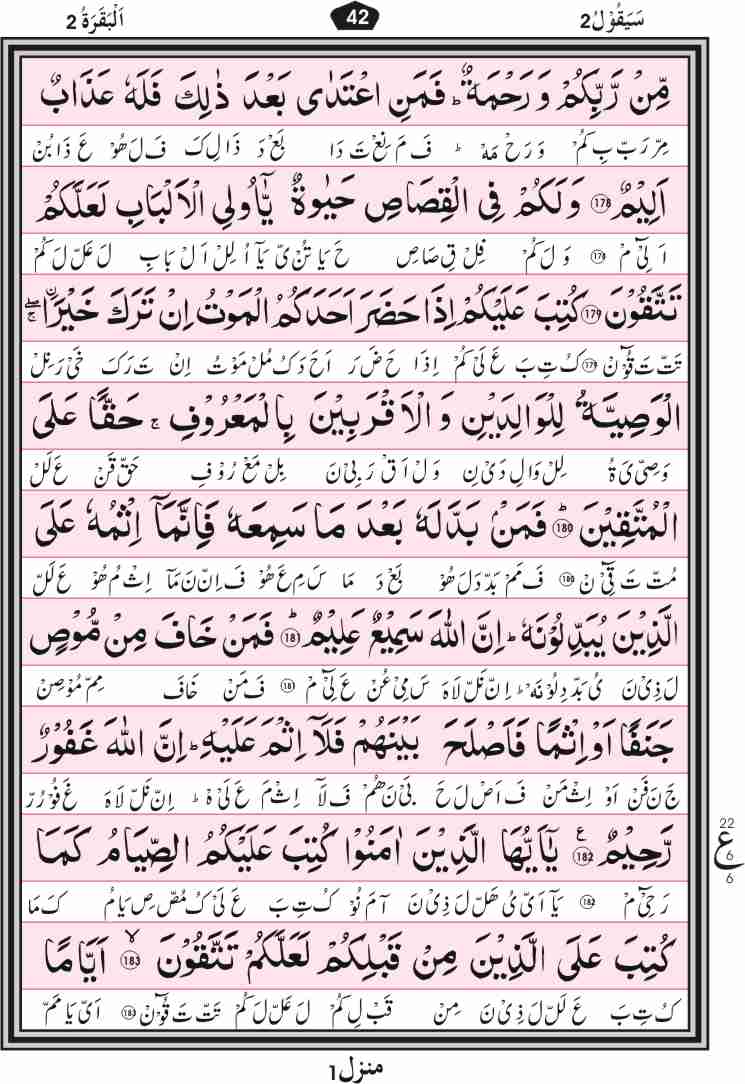 سَيَقُوْلُ2 42 اَلْبَقَرَةُ 2
مِّنْ رَّبِّكُمْ وَ رَحْمَةٌ ؕ فَمَنِ اعْتَدٰى بَعْدَ ذٰلِكَ فَلَهٗ عَذَابٌ
مِّرْ رَبْ بِ كُمْ وَ رَحْ مَهْ ؕ فَ مَ نِعْ تَ دَا بَعْ دَ ذَا لِ كَ فَ لَ هُوْ عَ ذَا بُنْ
اَلِيْمٌ ۝178 وَلَكُمْ فِى الْقِصَاصِ حَيٰوةٌ يّٰۤاُولِى الْاَلْبَابِ لَعَلَّكُمْ
اَ لِىْٓ مْ ۝178 وَ لَ كُمْ فِلْ قِ صَاصِ حَ يَا تُنْ ىّ يَآ اُ لِلْ اَلْ بَابِ لَ عَلْ لَ كُمْ
تَتَّقُوْنَ ۝179 كُتِبَ عَلَيْكُمْ اِذَا حَضَرَ اَحَدَكُمُ الْمَوْتُ اِنْ تَرَكَ خَيْرَا ۖۚ
تَتْ تَ قُوْٓنْ ۝179 كُ تِ بَ عَ لَىْ كُمْ اِذَا حَ ضَ رَ اَ حَ دَ كُ مُلْ مَوْ تُ اِنْ تَ رَ كَ خَىْ رَ نِلْ
الْوَصِيَّةُ لِلْوَالِدَيْنِ وَ الْاَقْرَبِيْنَ بِالْمَعْرُوْفِ ۚ حَقًّا عَلَى
وَ صِىْ ىَ ةُ لِلْ وَا لِ دَىْ نِ وَ لْ اَقْ رَ بِىْ نَ بِلْ مَعْ رُوْ فِ حَقْ قَنْ عَ لَلْ
الْمُتَّقِيْنَ ۝180 فَمَنْۢ بَدَّلَهٗ بَعْدَ مَا سَمِعَهٗ فَاِنَّمَاۤ اِثْمُهٗ عَلَى
مُتْ تَ قِىْٓ نْ ۝180 فَ مَمْ بَدْ دَ لَ هُوْ بَعْ دَ مَا سَ مِ عَ هُوْ فَ اِنْ نَ مَآ اِثْ مُ هُوْ عَ لَلْ
الَّذِيْنَ يُبَدِّلُوْنَهٗ ؕ اِنَّ اللّٰهَ سَمِيْعٌ عَلِيْمٌ ۝18 فَمَنْ خَافَ مِنْ مُّوْصٍ
لَ ذِىْ نَ ىُ بَدْ دِ لُوْ نَهْ ؕ اِنْ نَلْ لَاهَ سَ مِىْ عُنْ عَ لِىْٓ مْ ۝181 فَ مَنْ خَافَ مِمْ مُوْصِنْ
جَنَفًا اَوْ اِثْمًا فَاَصْلَحَ بَيْنَهُمْ فَلَاۤ اِثْمَ عَلَيْهِ ؕ اِنَّ اللّٰهَ غَفُوْرٌ
جَ نَ فَنْ اَوْ اِثْ مَنْ فَ اَصْ لَ حَ بَىْ نَ هُمْ فَ لَآ اِثْ مَ عَ لَىْ هْ ؕ اِنْ نَلْ لَا هَ غَ فُوْ رُرْ
رَّحِيْمٌ ۝182 ع يٰۤاَيُّهَا الَّذِيْنَ اٰمَنُوْا كُتِبَ عَلَيْكُمُ الصِّيَامُ كَمَا
رَ حِىْٓ مْ ۝182 يَآ اَىْ ىُ هَلْ لَ ذِىْ نَ آ مَ نُوْ كُ تِ بَ عَ لَىْ كُ مُصْ صِ يَا مُ كَ مَا
22 ع 6 6
كُتِبَ عَلَى الَّذِيْنَ مِنْ قَبْلِكُمْ لَعَلَّكُمْ تَتَّقُوْنَ ۝183 ۙ اَيَّامًا
كُ تِ بَ عَ لَلْ لَ ذِىْ نَ مِنْ قَبْ لِ كُمْ لَ عَلْ لَ كُمْ تَتْ تَ قُوْٓنْ ۝183 اَىْ يَا مَمْ
منزل1